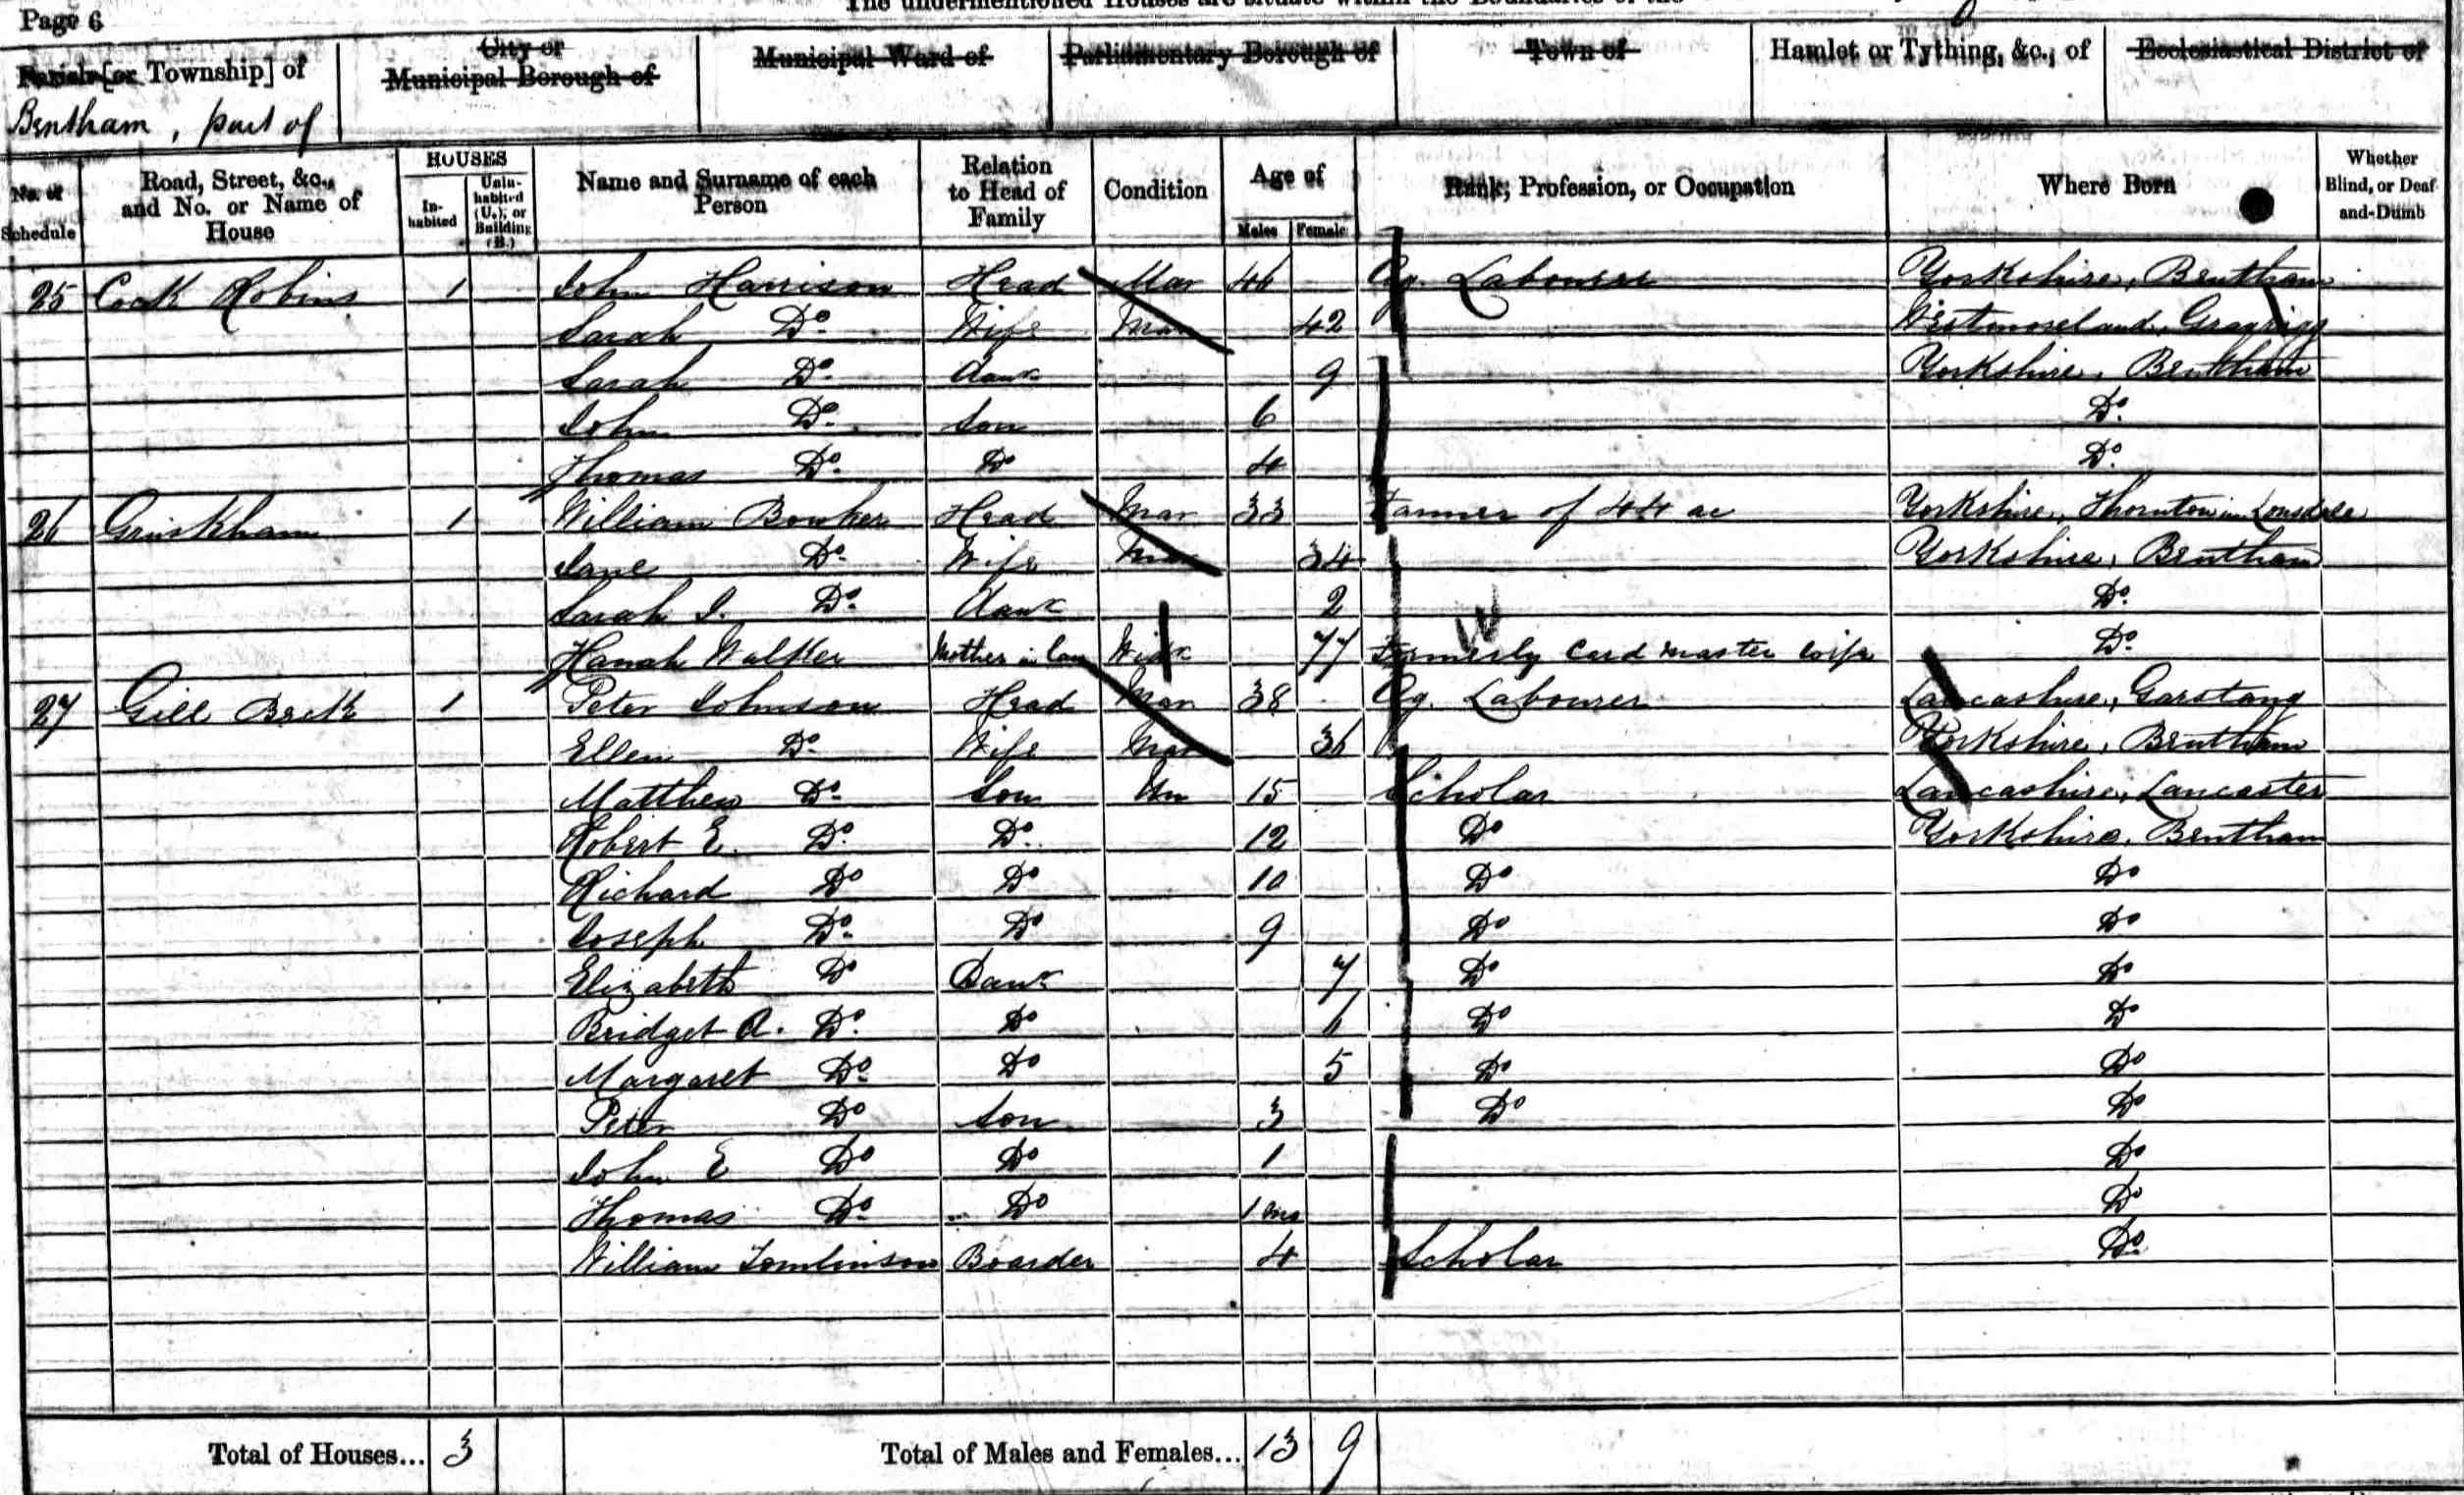 Page 6
The undermentioned Houses are situate within the Boundaries of the
Parish [or Township] of
City or Municipal Borough of
Municipal Ward of
Parliamentary Borough of
Town of
Hamlet or Tything, &c., of
Ecclesiastical District of
Bentham, part of
No. of Schedule
Road, Street, &c., and No. or Name of House
HOUSES
In-habited
Unin-habited (U.), or Building (B.)
Name and Surname of each Person
Relation to Head of Family
Condition
Age of
Males Females
Rank, Profession, or Occupation
Where Born
Whether Blind, or Deaf-and-Dumb
25 Cock Robins 1 John Harrison Head Mar 46 Ag. Labourer Yorkshire, Bentham
Sarah Do. Wife Mar 42 Westmoreland, Grayrigg
Sarah Do. daur 9 Yorkshire, Bentham
John Do. son 6 Do.
Thomas Do. Do 4 Do.
26 1 William Bowker Head Mar 33 Farmer of 44 ac Yorkshire, Thornton in Lonsdale
Jane Do. Wife Mar 34 Yorkshire, Bentham
Sarah J. Do. daur 2 Do.
Hanah Walker Mother in law Widr 77 Formerly Card Master wife Do.
27 Gill Beck 1 Peter Johnson Head Mar 38 Ag. Labourer Lancashire, Garstang
Ellen Do. Wife Mar 36 Yorkshire, Bentham
Matthew Do. Son Un 15 Scholar Lancashire, Lancaster
Robert E. Do. Do. 12 Do Yorkshire, Bentham
Richard Do Do 10 Do Do
Joseph Do. Do 9 Do Do
Elizabeth Do Daur 7 Do Do
Bridget A. Do. Do 6 Do Do
Margaret Do. Do 5 Do Do
Peter Do son 3 Do Do
John E Do Do 1 Do
Thomas Do. Do 1 mo Do
William Tomlinson Boarder 4 Scholar Do.
Total of Houses... 3 Total of Males and Females... 13 9